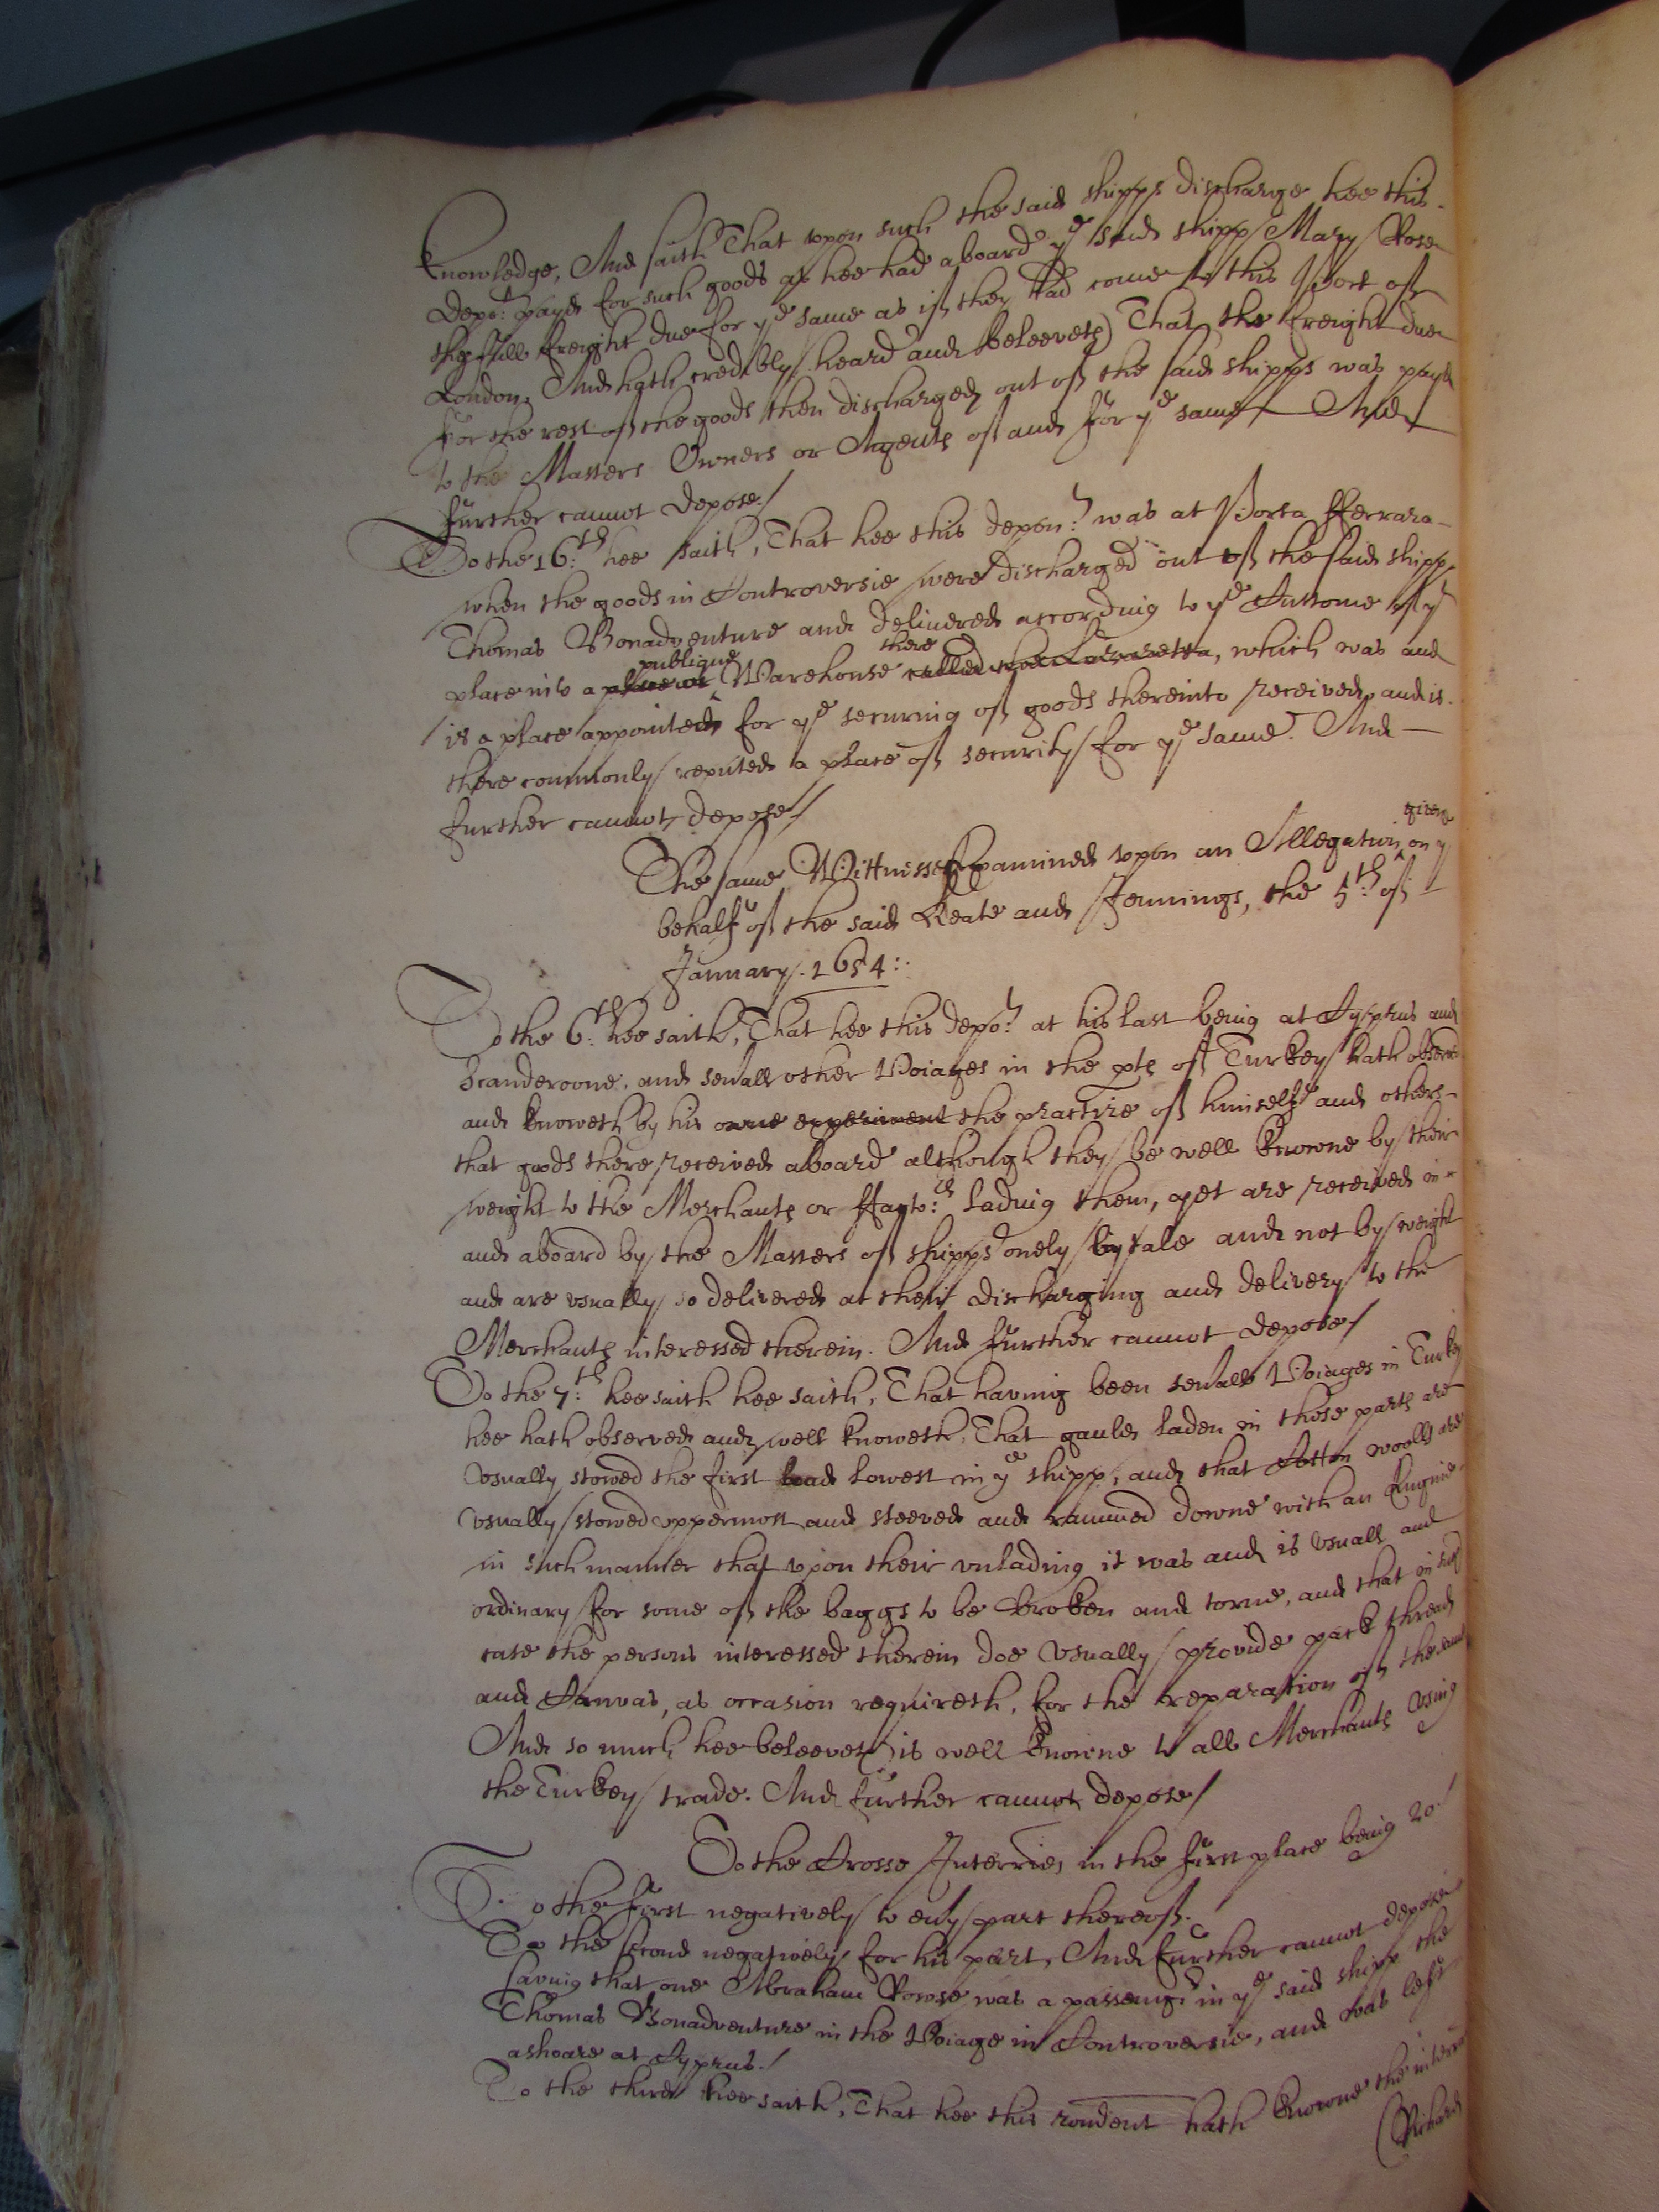 knowledge, And saith That upon such the said shipps discharge hee this
depo:t payd for such goods as hee had aboard ye said shipp Mary Rose
the full freight due for ye same as if they had come to this Port of
London, And hath credibly heard and beleeveth That the freight due
for the rest of the goods then discharged out of the said shipps was payd
to the Masters Owners or Agents of and for ye same And
further cannot depose./
To the 16:th hee saith, That hee this depon:t was at Porta fferrara
when the goods in Controversie were discharged out of the said shipp
Thomas Bonadventure and delivered according to ye Custome of ye
place into a place or publique Warehouse there called the Lazaretta, which was and
is a place appointed for ye securing of goods thereinto received, and is
there commonly reputed a place of security for ye same. And
further cannot depose./
The same Wittnesse Examined upon an Allegation given on ye
behalf of the said Keate and Jennings, the 5th: of
January. 1654:
To the 6:th hee saith, That hee this depo:t at his last being at Cyprus and
Scanderoone, and severall other Voiages in the pts of Turkey hath observed
and knoweth by his owne experiment the practize of himself and others
that goods there received aboard although they be well knowne by their
weight to the Merchants or ffacto:rs lading them, yet are received in
and aboard by the Masters of shipps onely by tale and not by weight
and are usually so delivered at their discharging and delivery to the
Merchants interessed therein. And further cannot depose./
To the 7:th hee saith hee saith, That having been severall Voiages in Turkey
hee hath observed and well knoweth, That gaules laden in those parts are
usually stowed the first and lowest in ye shipp, and that Cotton woolls are
usually stowed uppermost and steeved and rammed downe with an Engine
in such manner that upon their unlading it was and is usuall and
ordinary for some of the baggs to be broken and torne, and that in such
case the persons interessed therein doe usually provide pack thread
and Canvas, as occasion requireth, for the reparation of the same
And so much hee beleeveth is well knowne to all Merchants using
the Turkey trade. And further cannot depose./
To the Crosse Interries in the first place being 20./
To the first negatively to every part thereof./
To the second negatively for his part, And further cannot depose
saving that one Abraham Rowse was a passeng:r in ye said shipp the
Thomas Bonadventure in the Voiage in Controversie, and was left
ashoare at Cyprus./
To the third hee saith, That hee this rondent hath knowne the interr
Richard